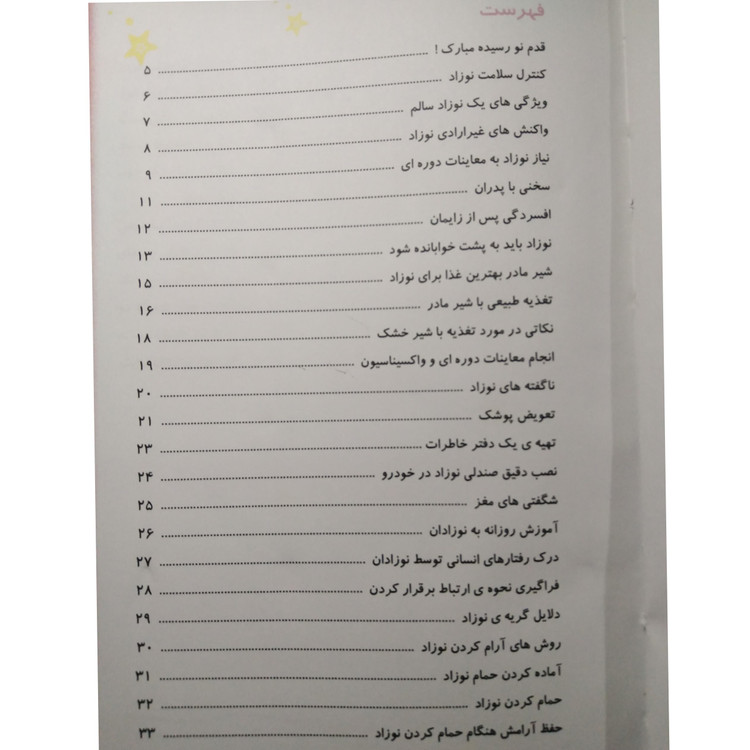 فهرست
قدم نو رسیده مبارک ! ۵
کنترل سلامت نوزاد ۶
ویژگی های یک نوزاد سالم ۷
واکنش های غیرارادی نوزاد ۸
نیاز نوزاد به معاینات دوره ای ۹
سخنی با پدران ۱۱
افسردگی پس از زایمان ۱۲
نوزاد باید به پشت خوابانده شود ۱۳
شیر مادر بهترین غذا برای نوزاد ۱۵
تغذیه طبیعی با شیر مادر ۱۶
نکاتی در مورد تغذیه با شیر خشک ۱۸
انجام معاینات دوره ای و واکسیناسیون ۱۹
ناگفته های نوزاد ۲۰
تعویض پوشک ۲۱
تهیه ی یک دفتر خاطرات ۲۳
نصب دقیق صندلی نوزاد در خودرو ۲۴
شگفتی های مغز ۲۵
آموزش روزانه به نوزادان ۲۶
درک رفتارهای انسانی توسط نوزادان ۲۷
فراگیری نحوه ی ارتباط برقرار کردن ۲۸
دلایل گریه ی نوزاد ۲۹
روش های آرام کردن نوزاد ۳۰
آماده کردن حمام نوزاد ۳۱
حمام کردن نوزاد ۳۲
حفظ آرامش هنگام حمام کردن نوزاد ۳۳